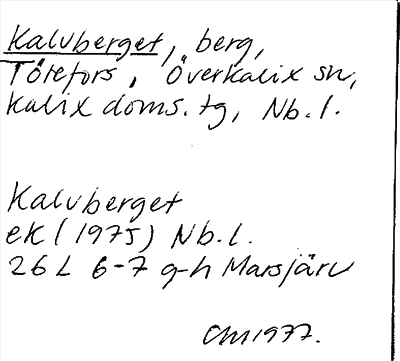 Kalvberget, berg,
Törefors, Överkalix sn,
Kalix doms. tg, Nb. l.
Kalvberget
ek (1975) Nb. l.
26 L 6-7 g-h Marsjärv
CM 1977.